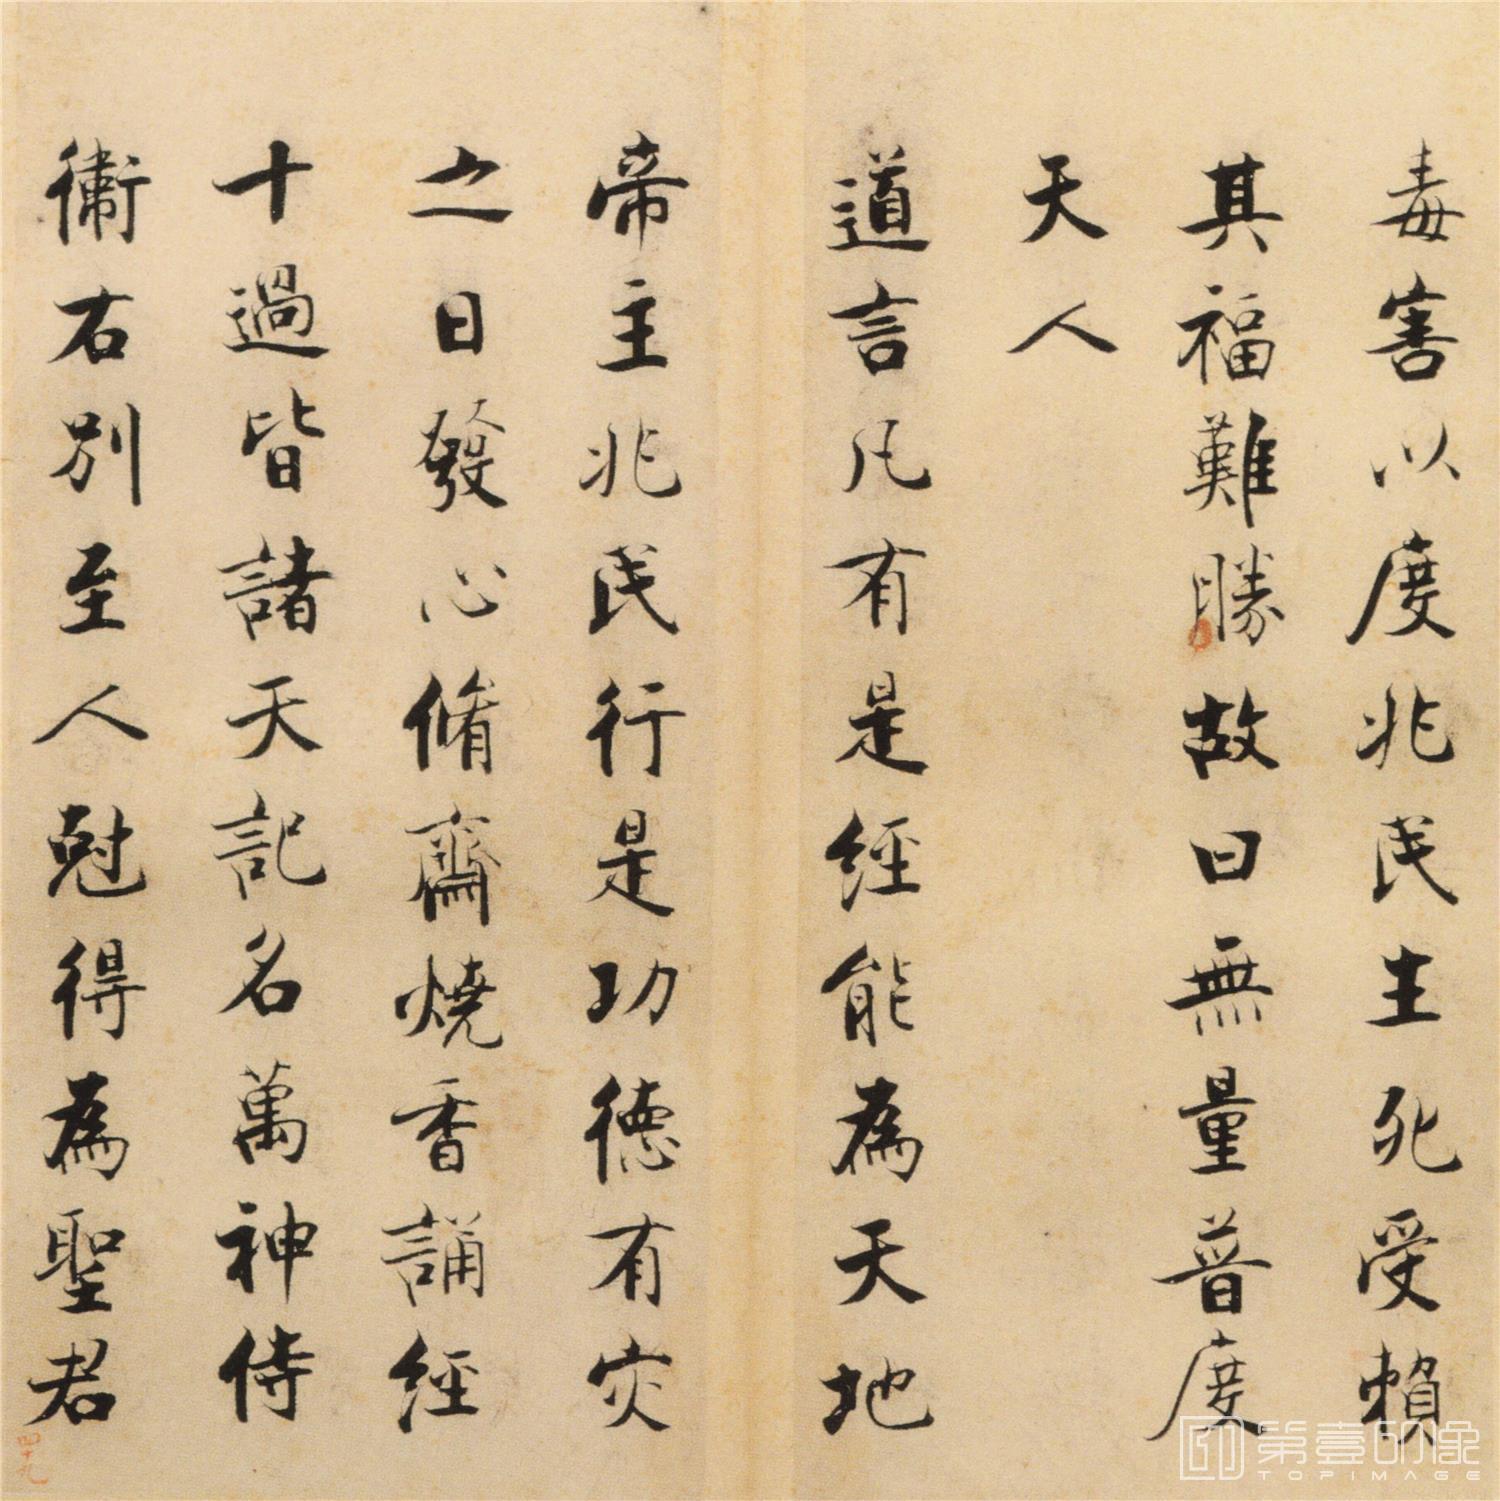 毒害以度兆民生死受賴
其福難勝故曰無量普度
天人
道言凡有是經能為天地
帝主兆民行是功德有灾
之日發心脩齋燒香誦經
十過皆諸天記名萬神侍
衞右別至人尅得為聖君
四十九
第壹印象
TOPIMAGE